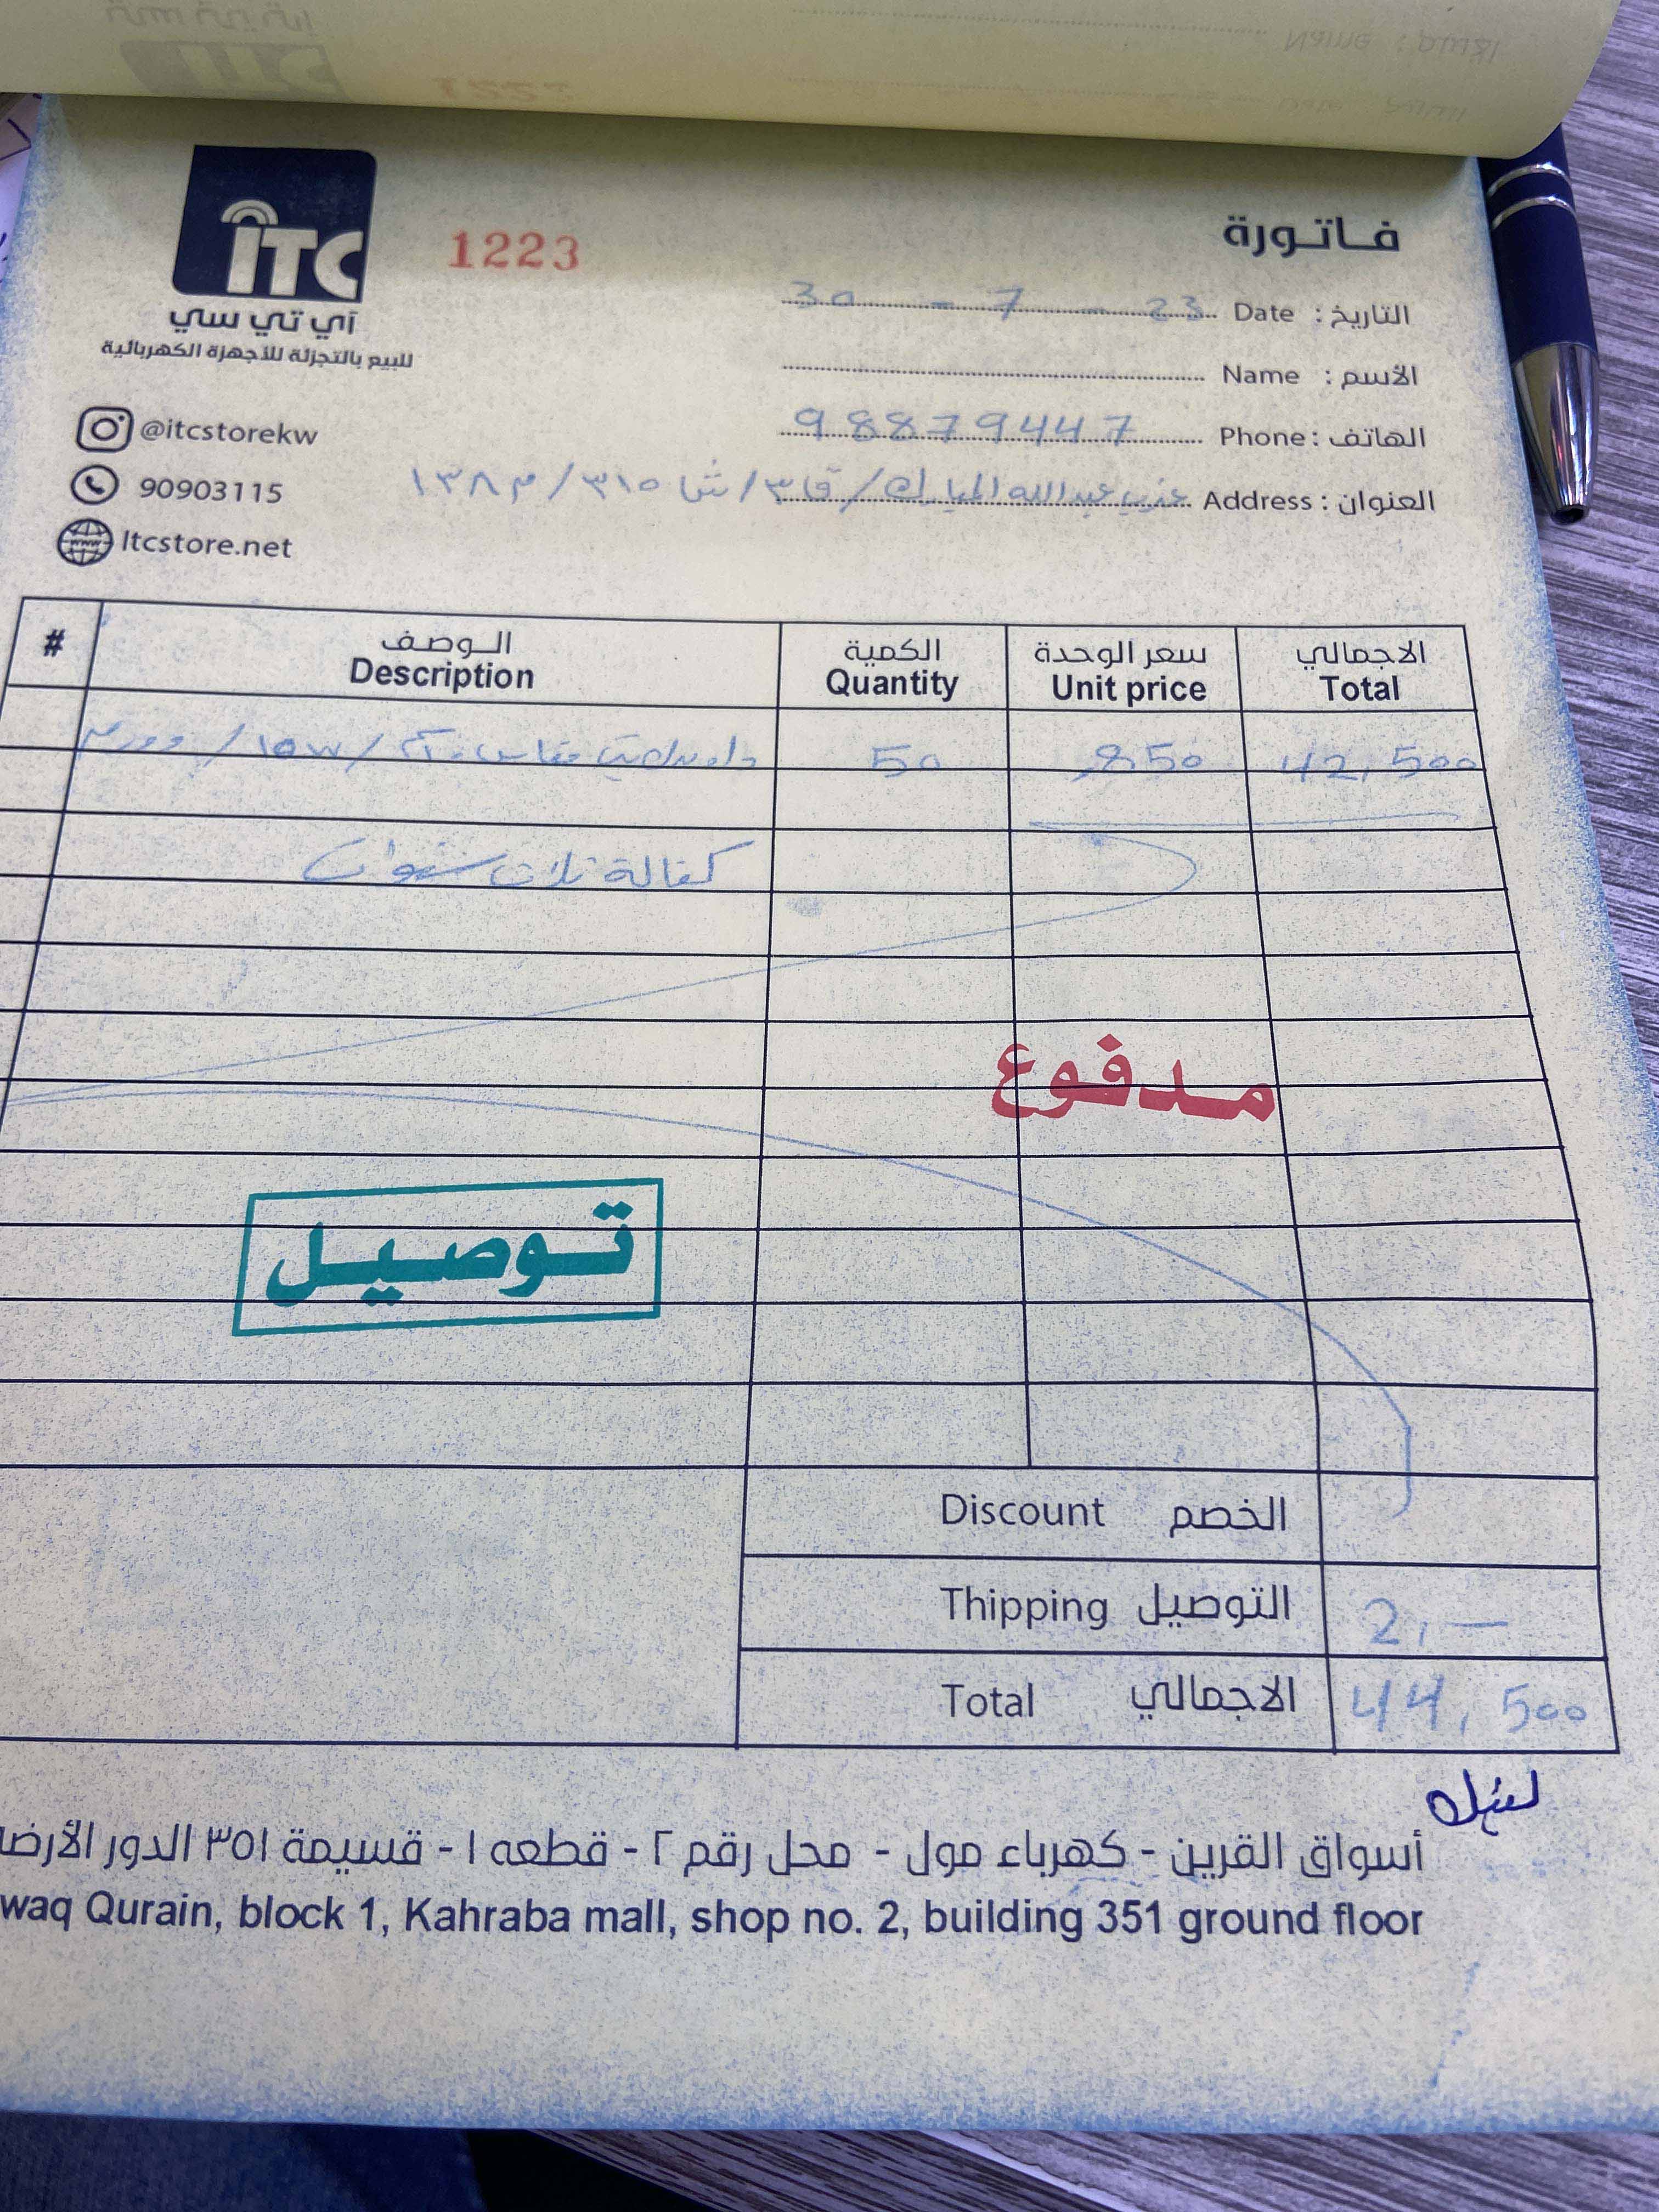 ITC
آي تي سي
للبيع بالتجزئة للأجهزة الكهربائية
1223
@itcstorekw
90903115
Itcstore.net
فاتورة
التاريخ : Date 30 - 7 - 23
الأسم : Name
الهاتف : Phone 98879447
العنوان : Address غرب عبدالله المبارك / ق٣ / ش ٣١٥ / م ١٣٨
# الوصف الكمية سعر الوحدة الاجمالي
Description Quantity Unit price Total
مقاس 50 ,850 42,500
كفالة ثلاث سنوات
مدفوع
توصيل
Discount الخصم
Thipping التوصيل 2,—
Total الاجمالي 44,500
أسواق القرين - كهرباء مول - محل رقم ٢ - قطعه ١ - قسيمة ٣٥١ الدور الأرضا
waq Qurain, block 1, Kahraba mall, shop no. 2, building 351 ground floor